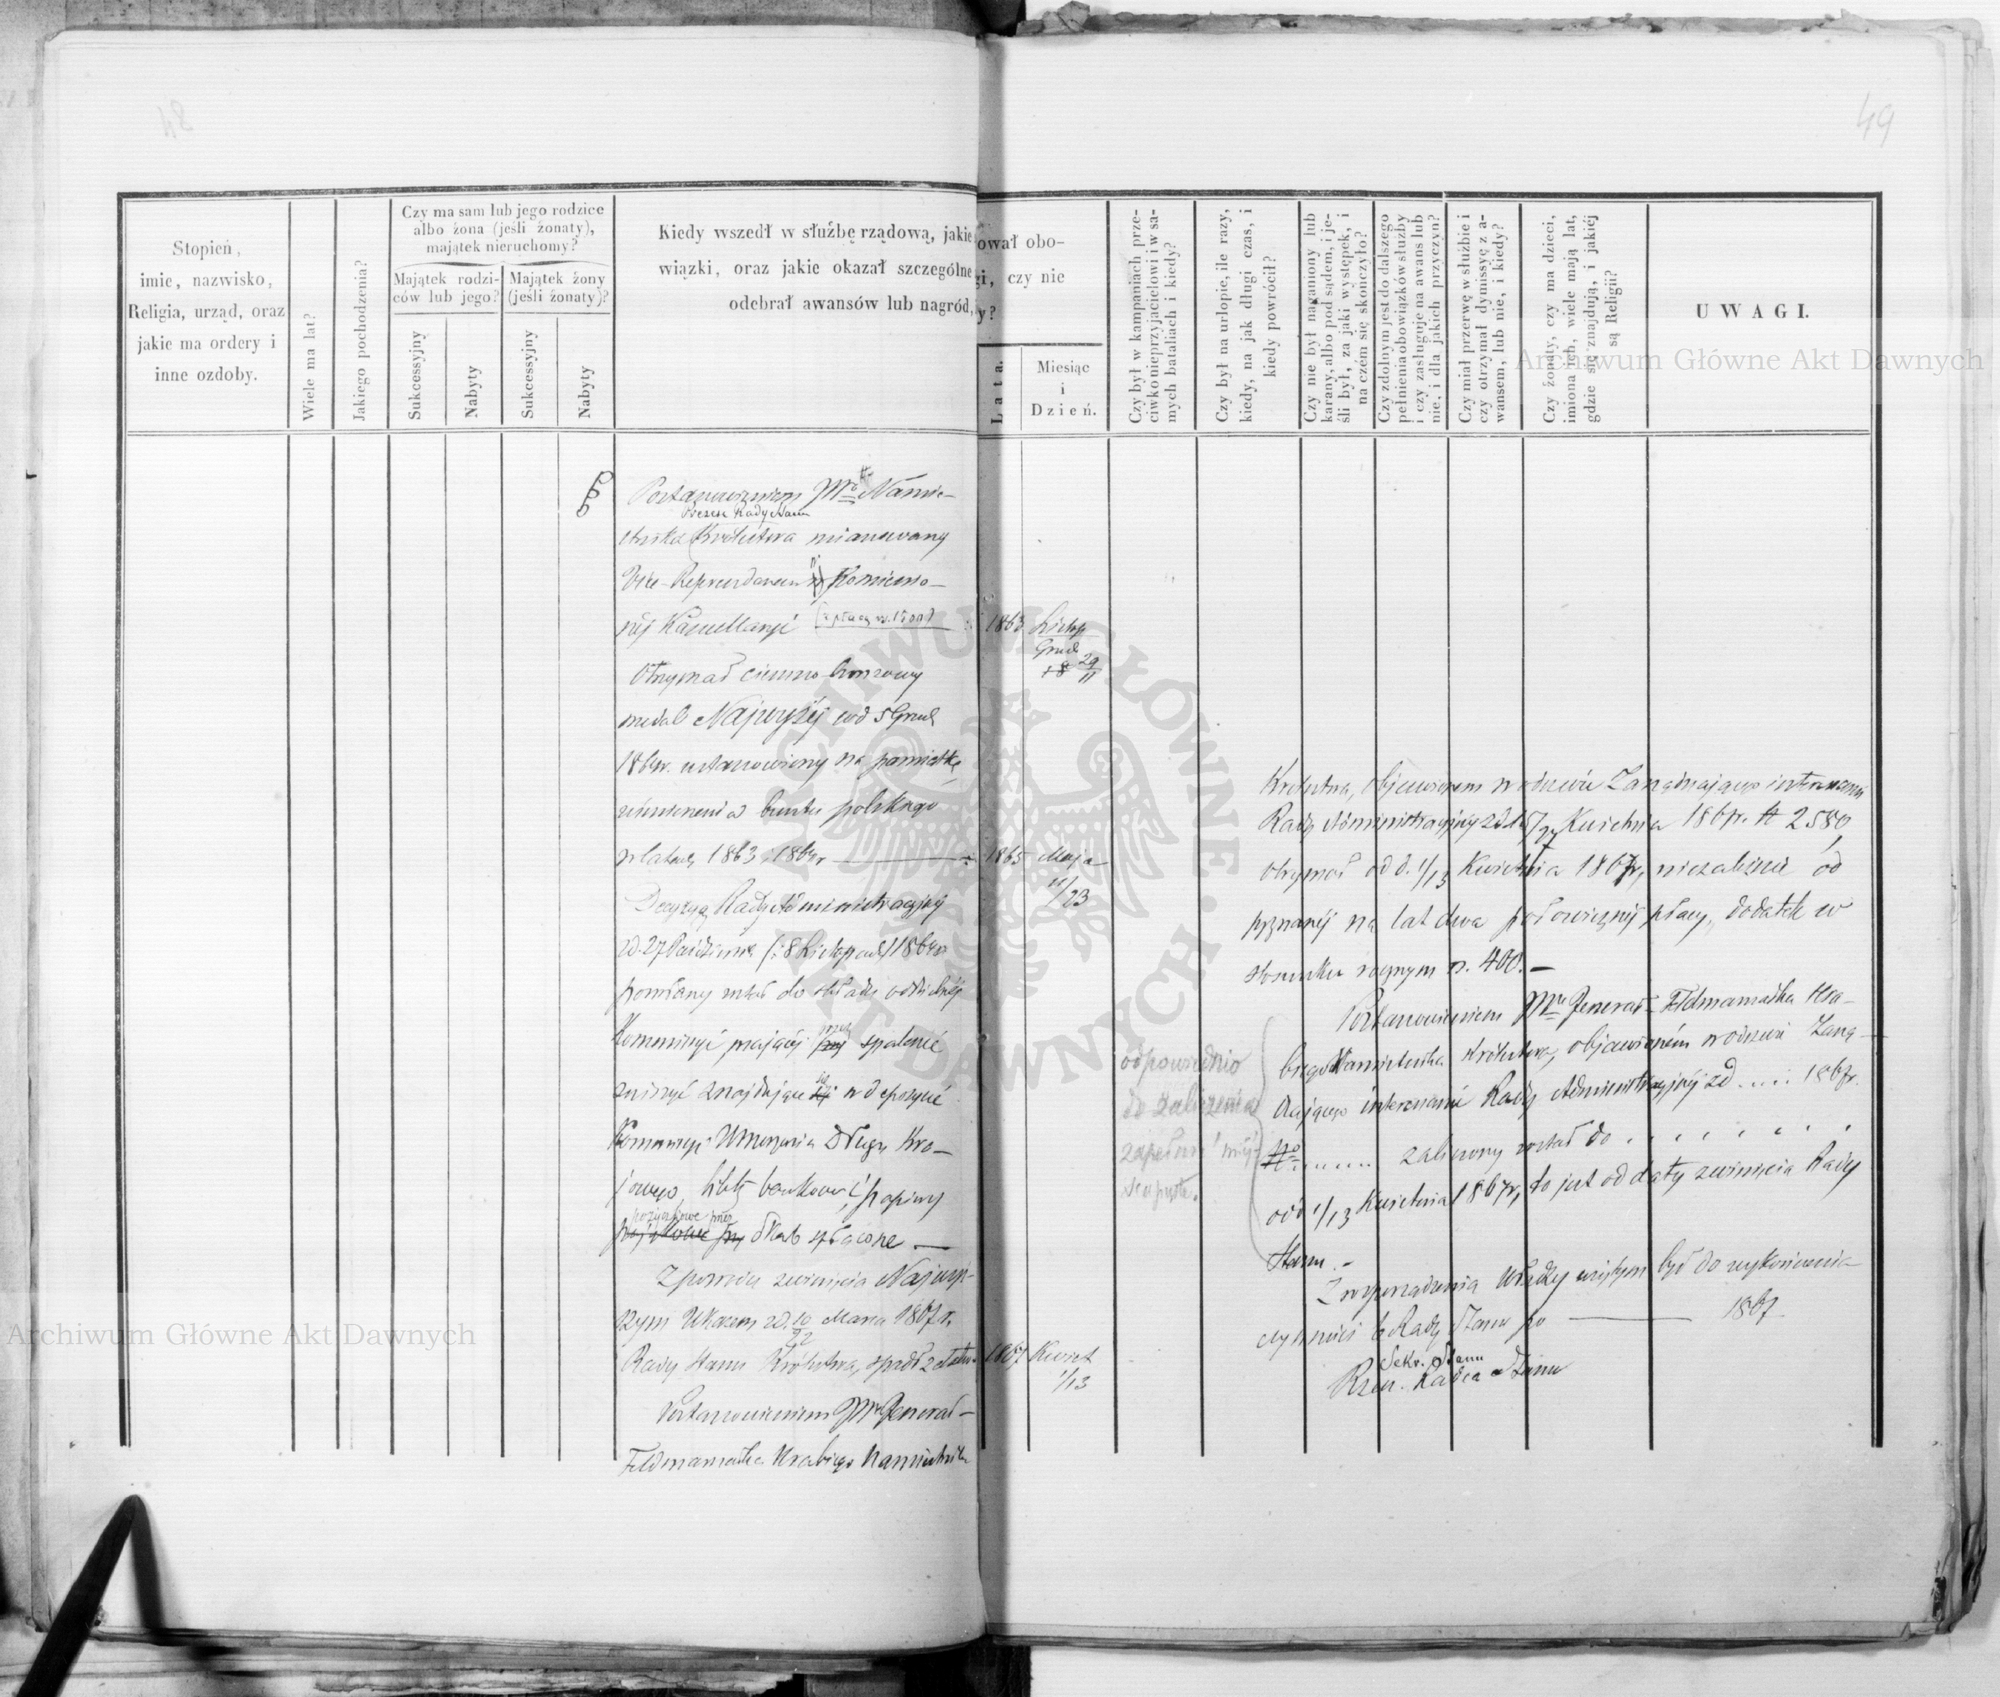 48
49
Stopień,
imie, nazwisko,
Religia, urząd, oraz
jakie ma ordery i
inne ozdoby.
Wiele ma lat?
Jakiego pochodzenia?
Czy ma sam lub jego rodzice
albo żona (jeśli żonaty),
majątek nieruchomy?
Majątek rodzi-
ców lub jego?
Majątek żony
(jeśli żonaty)?
Sukcessyjny
Nabyty
Sukcessyjny
Nabyty
Kiedy wszedł w służbę rządową, jakie
wiązki, oraz jakie okazał szczególne
odebrał awansów lub nagród,
ował obo-
gi, czy nie
y?
Lata.
Miesiąc
i
Dzień.
Czy był w kampaniach prze-
ciwko nieprzyjacielowi i w sa-
mych bataliach i kiedy?
Czy był na urlopie, ile razy,
kiedy, na jak długi czas, i
kiedy powrócił?
Czy nie był naganiony lub
karany, albo pod sądem, i je-
śli był, za jaki występek, i
na czém się skończyło?
Czy zdolnym jest do dalszego
pełnienia obowiązków służby
i czy zasługuje na awans lub
nie, i dla jakich przyczyn?
Czy miał przerwę w służbie i
czy otrzymał dymissyę z a-
wansem, lub nie, i kiedy?
Czy żonaty, czy ma dzieci,
imiona ich, wiele mają lat,
gdzie się znajdują, i jakiej
są Religii?
UWAGI.
Postanowieniem Namie-
Prezesa Rady Stanu
stnika Królestwa mianowany
Vice-Referendarzem
téj Kancellaryi (z płacą rs. 1500)
1863 Listop
Grud
29
11
Otrzymał ciemno bronzowy
medal Najwyżéj pod 5 Grud
1864r. ustanowiony na pamiątkę
uśmierzenia buntu polskiego
w latach 1863 i 1864r
1865 Maja
11/23
Decyzyą Rady Administracyjnéj
zd. 27 Paździer (8 Listopada) 1864r
powołany został do składu oddzielnéj
Kommissyi mającéj przez spalenie
zniszczyć znajdujące się w depozycie
Kommissyi Umorzenia Długu Kra-
jowego, bilety bankowe i papiery
pożyczkowe przez
Skarb spłacone —
Z powodu zwinięcia Najwyż-
szym Ukazem zd. 10/22 Marca 1867 r.
Rady Stanu Królestwa, spadł z etatu
1867 Kwiet
1/13
Postanowieniem Jenerał-
Feldmarszałka Hrabiego Namiestnika
Królestwa, objawionem w odezwie Zarządzającego interesami
Rady Administracyjnéj zd. 15/27 Kwietnia 1867r. N 2580,
otrzymał od d. 1/13 Kwietnia 1867r, niezależnie od
przyznanéj na lat dwa połowicznéj płacy, dodatek w
stosunku rocznym rs. 400. —
Postanowieniem Jenerał-Feldmarszałka Hra-
biego Namiestnika Królestwa, objawionem w odezwie Zarzą-
dzającego interesami Rady Administracyjnéj zd. .... 1867r.
No ....... zaliczony został do . . . . . . .
od d 1/13 Kwietnia 1867r, to jest od daty zwinięcia Rady
Stanu. —
odpowiednio
do zaliczenia
zapełnić miéj-
sca puste.
Z rozporządzenia Władzy użytym był do wykończenia
czynności b. Rady Stanu po ——— 1867
Sekr. Stanu
Rzecz. Radca Stanu
Archiwum Główne Akt Dawnych
Archiwum Główne Akt Dawnych
ARCHIWUM GŁÓWNE AKT DAWNYCH